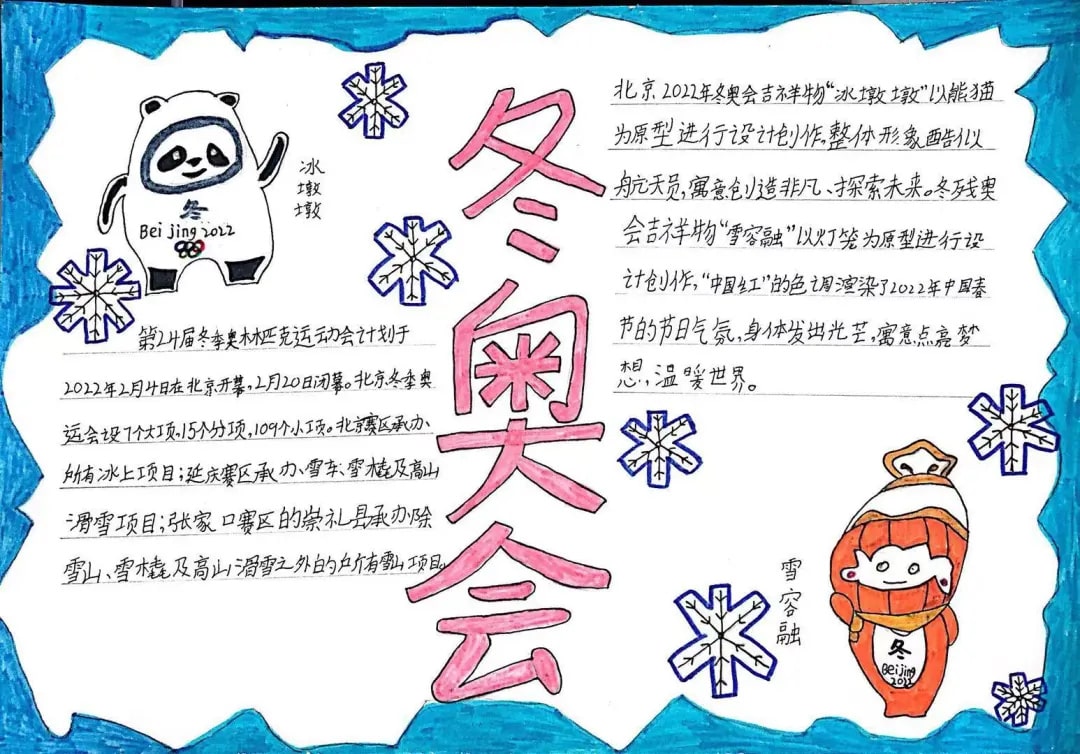 冬奥会
冰墩墩
冬
Beijing 2022
第24届冬季奥林匹克运动会计划于
2022年2月4日在北京开幕,2月20日闭幕。北京冬季奥
运会设7个大项,15个分项,109个小项。北京赛区承办
所有冰上项目;延庆赛区承办、雪车、雪橇及高山
滑雪项目;张家口赛区的崇礼县承办除
雪山、雪橇及高山滑雪之外的所有雪山项目。
北京2022年冬奥会吉祥物“冰墩墩”以熊猫
为原型进行设计创作,整体形象酷似
航天员,寓意创造非凡、探索未来。冬残奥
会吉祥物“雪容融”以灯笼为原型进行设
计创作,“中国红”的色调渲染了2022年中国春
节的节日气氛,身体发出光芒,寓意点亮梦
想,温暖世界。
雪容融
冬
Beijing
2022